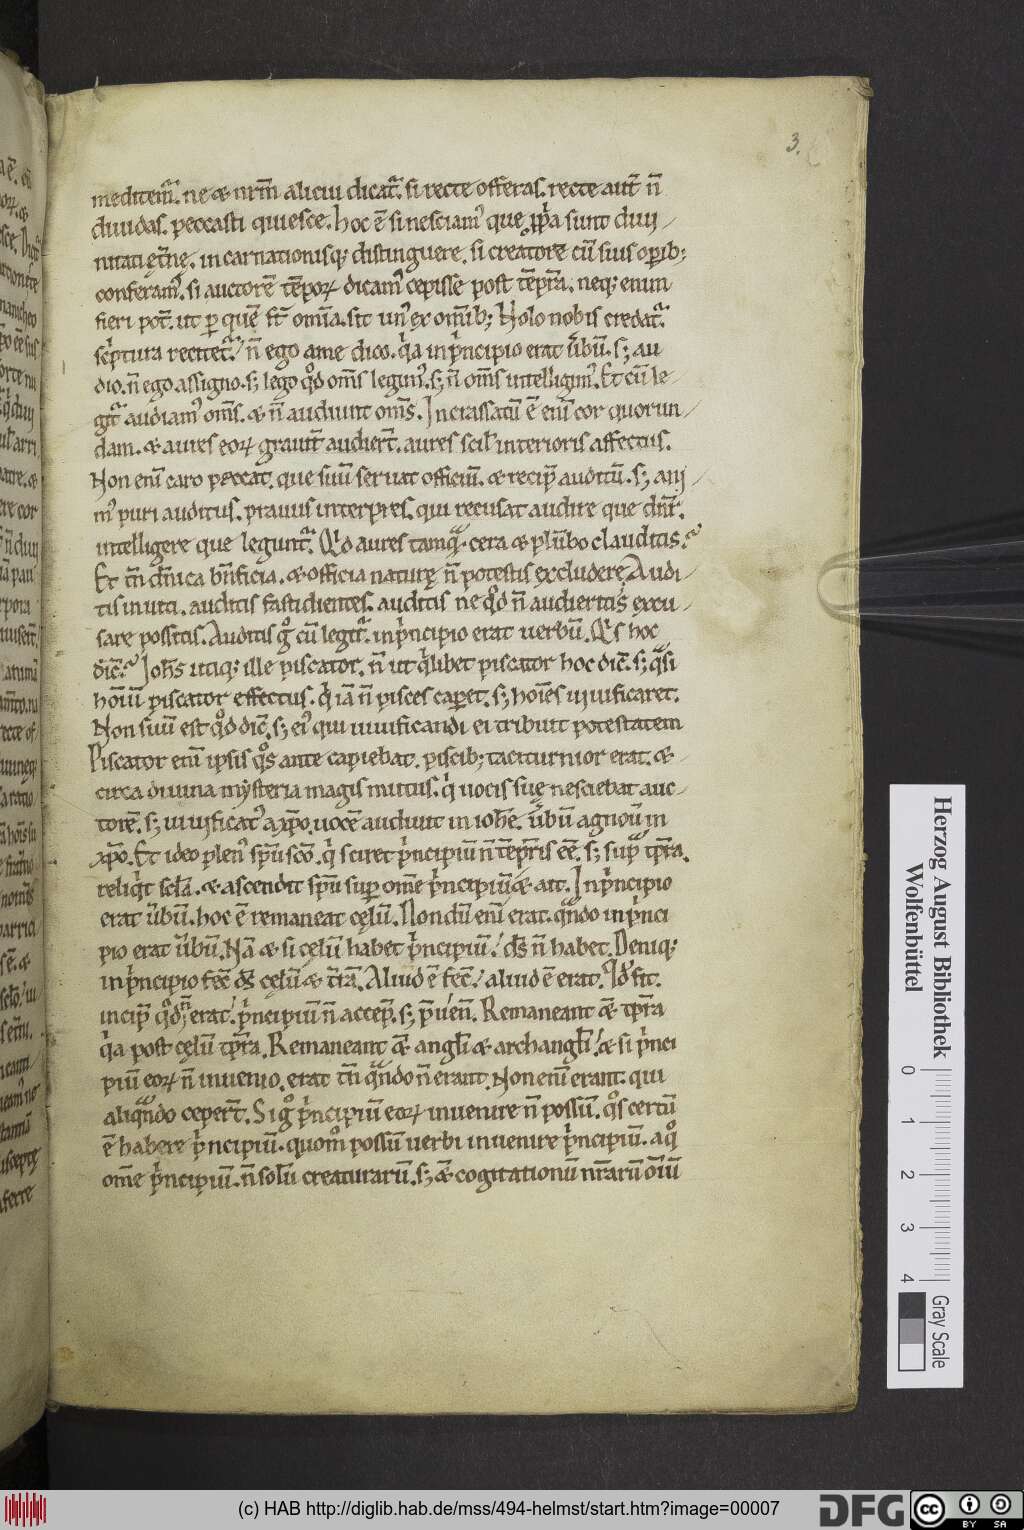 3.
meditem̃. ne & nr̃m alicui dicat̃. si recte offeras. recte aut̃ ñ
diuidas. peccasti quiesce. hoc ē si nesciam᾽ que ꝓpͥa sunt diui
nitati ęt̃nę. incarnationisq; distinguere. si creatorē cũ suis oꝑib;
conferam᾽. si auctorē tẽpoꝝ dicam᾽ cepisse post tẽpͣra. neq; enim
fieri pot̃. ut ꝑ quẽ fc̃t omĩa. sit un᾽ ex omĩb; Nolo nobis credat̃.
scͥptura recitet̃. ñ ego a me dico. qͥa in pͥncipio erat ũbũ. s; au
dio. ñ ego assigno. s; lego qͦd om̃s legim᾽. s; ñ om̃s intelligim᾽. Et cũ le
git̃ audiam᾽ om̃s. & ñ audiunt om̃s. Incrassatũ ē enĩ cor quorun
dam. & aures eoꝝ grauit̃ audiert̃. aures scil̃ interioris affectus.
Non enĩ caro peccat. que suũ seruat officiũ. & recip̃ auditũ. s; ani
m᾽ puri auditus. prauus interpres. qui recusat audire que dñr̃.
intelligere que legunt̃. Qͥd aures tamqͣ cera & plũbo clauditis.
Et tñ dñica bñficia. & officia naturę ñ potestis excludere. Audi
tis inuiti. auditis fastidientes. auditis ne qͦd ñ audieritis excu
sare possitis. Auditis gͦ cũ legit̃. in pͥncipio erat uerbũ. Qͥs hoc
dic̃. Ioħs utiq; ille piscator. ñ ut qͥlibet piscator hoc dic̃. s; qͣsi
hoĩũ piscator effectus. qͥ iã ñ pisces caperet. s; hoĩes uiuificaret.
Non suũ est qͦd dic̃. s; ei᾽ qui uiuificandi ei tribuit potestatem
Piscator enĩ ipsis qͦs ante capiebat. piscib; taciturnior erat. &
circa diuina mysteria magis mutus. qͥ uocis suę nesciebat auc
torẽ. s; uiuificat᾽ a xp̃o. uocẽ audiuit in ioħe. ũbũ agnouͥ in
xp̃o. Et ideo plen᾽ sp̃u sc̃o. qͥ sciret pͥncipiũ ñ tẽpͥris eẽ. s; supͣ tp̃ra.
reliqͥt sc̃la. & ascendit sp̃u suꝑ omẽ pͥncipiũ & ait. In pͥncipio
erat ũbũ. hoc ē remaneat cęlũ. Nondũ enĩ erat. qͣndo in pͥnci
pio erat ũbũ. Nã & si cęlũ habet pͥncipiũ. dS̃ ñ habet. Deniq;
in pͥncipio fec̃ ds̃ cęlũ & t̃rã. Aliud ē fec̃. aliud ē erat. Qͦd fit.
incip̃ qͦd erat. pͥncipiũ ñ accep̃. s; p̃uen̄. Remaneant & tp̃ra
qͥa post cęlũ tp̃ra. Remaneant & angl̃i & archangl̃i. & si pͥnci
piũ eoꝝ ñ inuenio. erat tñ qͣndo ñ erant. Non enĩ erant. qui
aliqͣndo cepert̃. Si gͦ pͥncipiũ eoꝝ inuenire ñ possũ. qͦs certũ
ē habere pͥncipiũ. quom̊ possũ uerbi inuenire pͥncipiũ. a qͦ
omẽ pͥncipiũ. ñ solũ creaturarũ. s; & cogitationũ nr̃arũ oĩũ
Herzog August Bibliothek
Wolfenbüttel
0 1 2 3 4
Gray Scale
(c) HAB http://diglib.hab.de/mss/494-helmst/start.htm?image=00007
DFG
cc BY SA